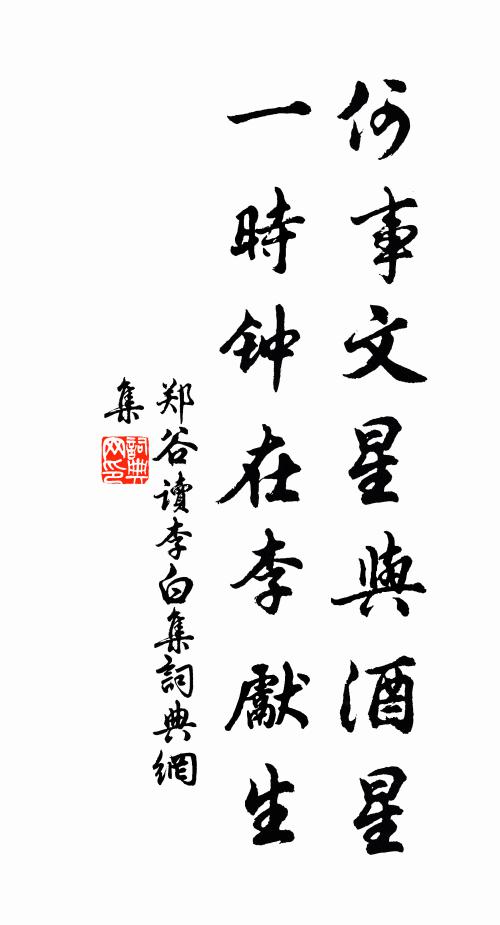 何事文星與酒星
一時钟在李獻生
郑谷讀李白集詞典網
集
詞典
网印